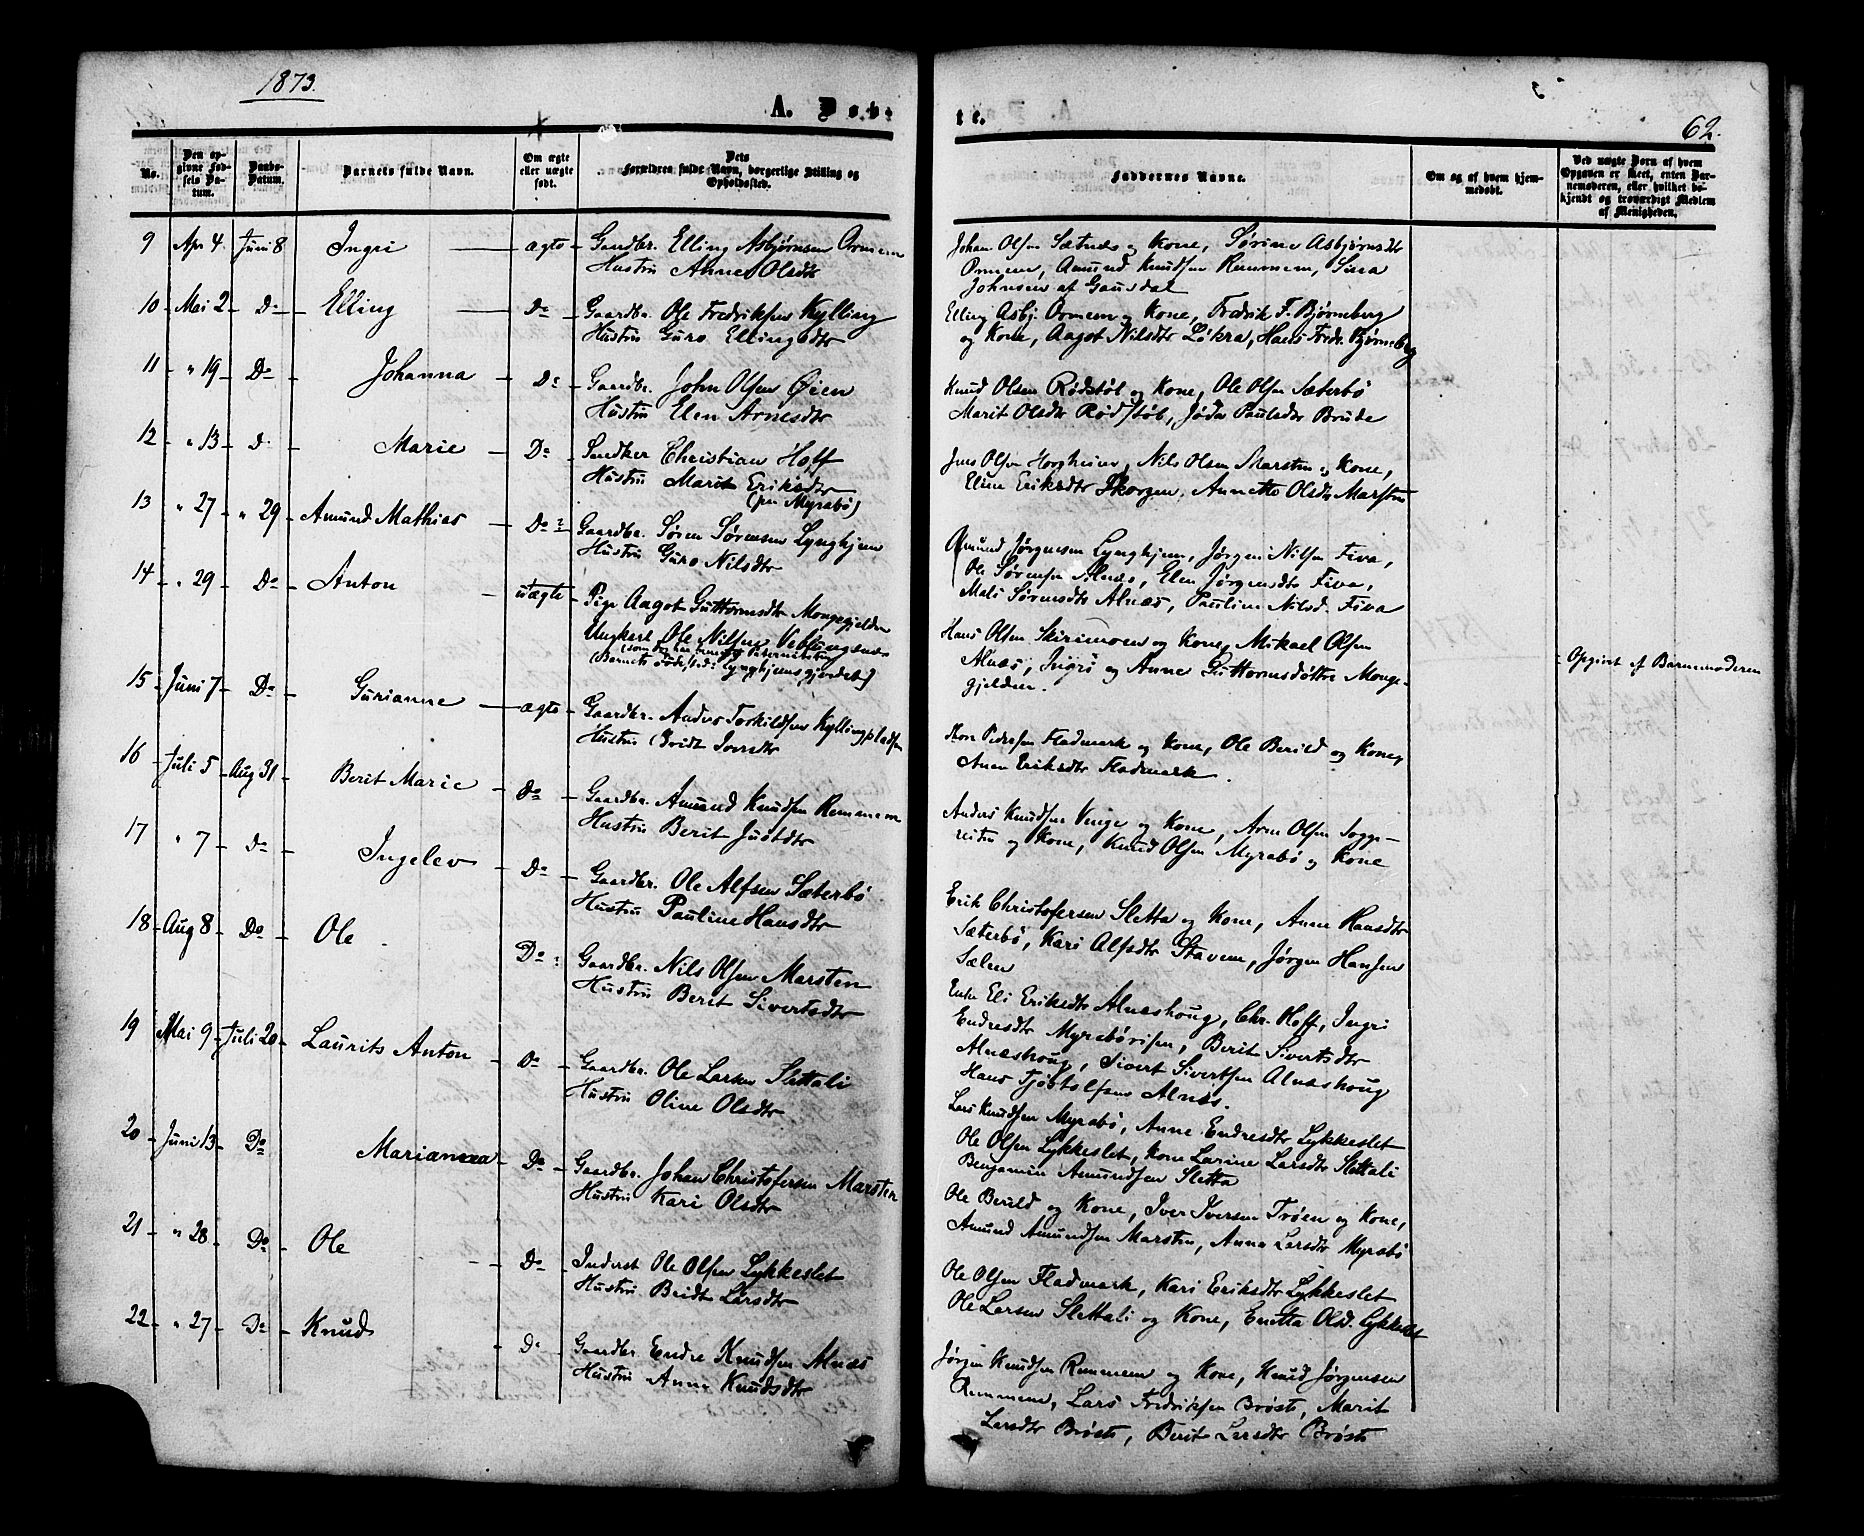 1873.
A. Døbte.
62.
No.
Den opgivne Fødsels Datum.
Daabs-Datum.
Barnets fulde Navn.
Om ægte eller uægte født.
Dets Forældres fulde Navn, borgerlige Stilling og Opholdssted.
Faddernes Navne.
Om og af hvem hjemmedøbt.
Ved uægte Børn af hvem Opgaven er skeet, enten Barnemoderen, eller hvilket bekjendt og troværdigt Medlem af Menigheden.
9 Apr 4. Juni 8 Ingri ægte Gaardbr. Elling Asbjørnsen Ormem
Hustru Anne Olsdtr
Johan Olsen Sætnæs og Kone, Sørine Asbjørnsdtr
Ormem, Amund Knudsen Remmem,
Johnsen af Gausdal
10 Mai 2 Do Elling Do Gaardbr. Ole Fredriksen Kylling
Hustru Guro Ellingsdtr
Elling Asbj. Ormem og Kone, Fredrik F. Bjørneberg
og Kone, Aagot Nilsdtr Løkra, Hans Fredr. Bjørneberg
11 " 19 Do Johanna Do Gaardbr. John Olsen Øien
Hustru Elen Arnesdtr
Knud Olsen Rødstøl og Kone, Ole Olsen Sæterbø
Marit Olsdtr Rødstøl, Paulsdtr Brude
12 " 13 D. Marie Do Christian Hoff
Hustru Marit Eriksdtr
(paa Myrabø)
Jens Olsen Horgheim, Nils Olsen Marsten og Kone,
Eline Eriksdtr Skorgen, Annette Olsdtr Marsten
13 " 27 " 29 Amund Mathias Do Gaardbr. Søren Sørensen Lynghjem
Hustru Guro Nilsdtr
Amund Jørgensen Lynghjem, Jørgen Nilsen Fiva,
Ole Sørensen Alnæs, Elen Jørgensdtr Fiva,
Mali Sørensdtr Alnæs, Pauline Nilsd. Fiva
14 " 29 Do Anton uægte Pige Aagot Guttormsdtr Mongegjelden
Ungkarl Ole Nilsen Veblungsnæs
(Barnets Fødested: Lynghjemsgjerdet)
Hans Olsen Skirimoen og Kone, Mikael Olsen
Alnæs, Ingri og Anne Guttormsdøttre Monge-
gjelden.
Opgivet af Barnemoderen
15 Juni 7 Do Gurianne ægte Gaardbr. Anders Torkildsen Kyllingpladsen
Hustru Bridt Iversdtr
Peder­sen Fladmark og Kone, Ole Berild og Kone,
Anne Eriksdtr Fladmark.
16 Juli 5 Aug 31 Berit Marie Do Gaardbr. Amund Knudsen Remmem
Hustru Berit Justdtr
Anders Knudsen Venge og Kone, Arne Olsen Sogge-
og Kone, Knud Olsen Myrabø og Kone
17 " 7 Do Ingelev Do Gaardbr. Ole Alfsen Sæterbø
Hustru Pauline Hansdtr
Erik Christofersen Sletta og Kone, Anne Hansdtr
Sæterbø, Kari Alfsdtr Stavem, Jørgen Hansen
Sælen
18 Aug 8 Do Ole Do Gaardbr. Nils Olsen Marsten
Hustru Berit Sivertsdtr
Enke Eli Eriksdtr Alnæshoug, Chr. Hoff, Ingri
Endresdtr Myrabø, Berit Sivertsdtr
Alnæshoug, Sivert Sivertsen Alnæshoug
Hans Tjøstolfsen Alnæs.
19 Mai 9 Juli 20 Laurits Anton Do Gaardbr. Ole Larsen Slettali
Hustru Oline Olsdtr
Lars Knudsen Myrabø, Anne Endresdtr Lykkeslet
Ole Olsen Lykkeslet, Kone Larine Larsdtr Slettali
Benjamin Amundsen Sletta
20 Juni 13 Do Marianna Do Gaardbr. Johan Christofersen Marsten
Hustru Kari Olsdtr
Ole Berild og Kone, Iver Iversen Trøen og Kone,
Amund Amundsen Marsten, Anne Larsdtr Myrabø
21 " 28 Do Ole Do Inderst Ole Olsen Lykkeslet
Hustru Bridt Larsdtr
Ole Olsen Fladmark, Kari Eriksdtr Lykkeslet
Ole Larsen Slettali og Kone, Olsd. Lykkeslet
22 " 27 Do Knud Do Gaardbr Endre Knudsen Alnæs
Hustru Anne Knudsdtr
Jørgen Knudsen Remmem og Kone, Knud Jørgensen
Remmem, Lars Fredriksen Brøste, Marit
Larsdtr Brøste, Berit Larsdtr Brøste